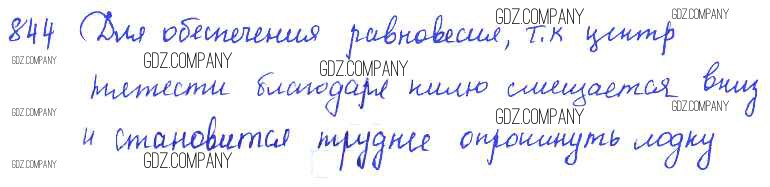 844 Для обеспечения равновесия, т.к центр
тяжести благодаря килю смещается вниз
и становится труднее опрокинуть лодку
GDZ.COMPANY
GDZ.COMPANY
GDZ.COMPANY
GDZ.COMPANY
GDZ.COMPANY
GDZ.COMPANY
GDZ.COMPANY
GDZ.COMPANY
GDZ.COMPANY
GDZ.COMPANY
GDZ.COMPANY